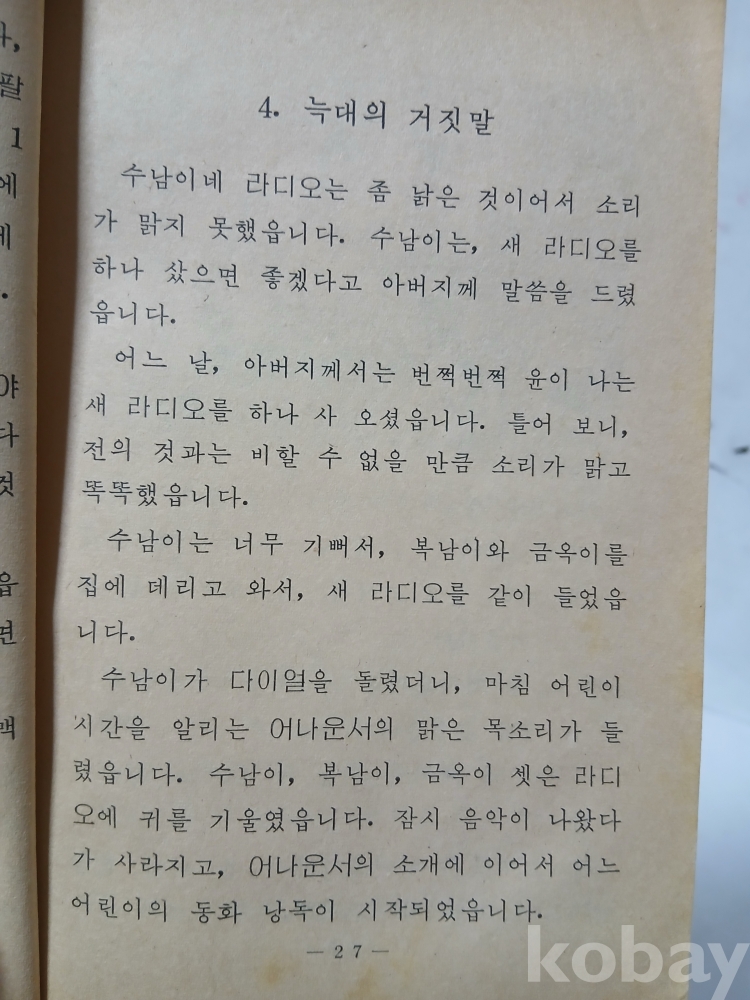 4. 늑대의 거짓말
수남이네 라디오는 좀 낡은 것이어서 소리
가 맑지 못했읍니다. 수남이는, 새 라디오를
하나 샀으면 좋겠다고 아버지께 말씀을 드렸
읍니다.
어느 날, 아버지께서는 번쩍번쩍 윤이 나는
새 라디오를 하나 사 오셨읍니다. 틀어 보니,
전의 것과는 비할 수 없을 만큼 소리가 맑고
똑똑했읍니다.
수남이는 너무 기뻐서, 복남이와 금옥이를
집에 데리고 와서, 새 라디오를 같이 들었읍
니다.
수남이가 다이얼을 돌렸더니, 마침 어린이
시간을 알리는 어나운서의 맑은 목소리가 들
렸읍니다. 수남이, 복남이, 금옥이 셋은 라디
오에 귀를 기울였읍니다. 잠시 음악이 나왔다
가 사라지고, 어나운서의 소개에 이어서 어느
어린이의 동화 낭독이 시작되었읍니다.
— 27 —
kobay